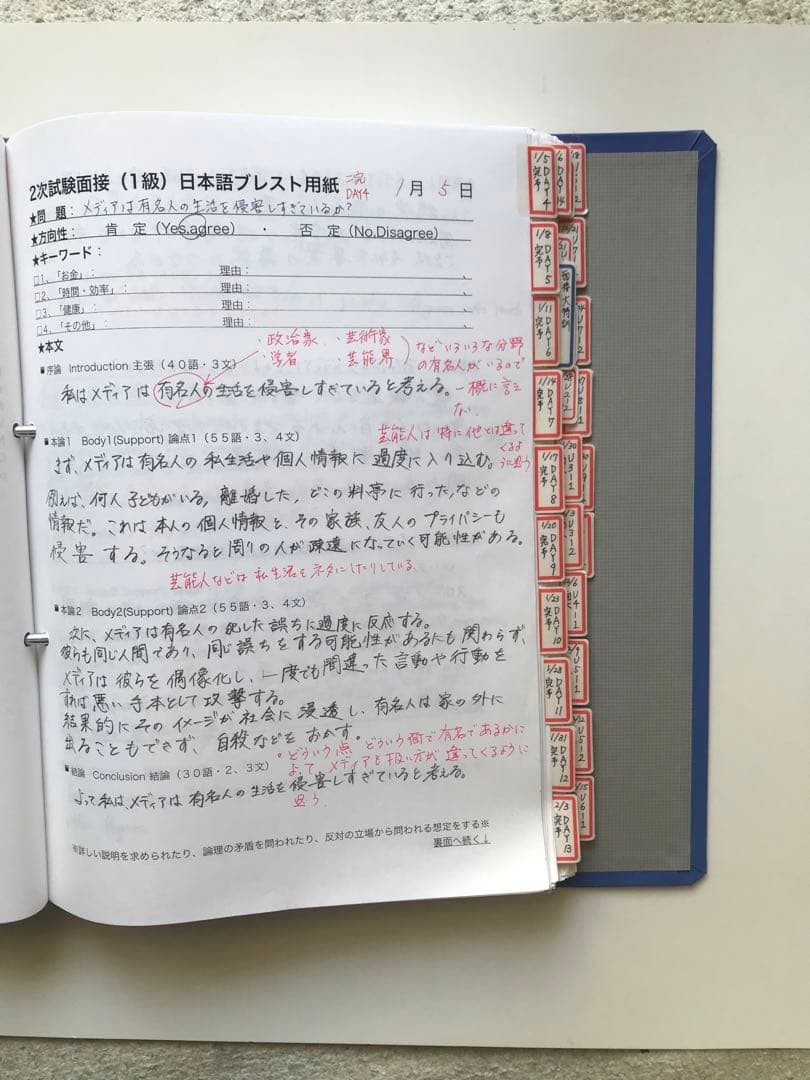 2次試験面接（1級）日本語ブレスト用紙 二完 DAY4 1月5日
★問 題：メディアは有名人の生活を侵害しすぎているか?
★方向性： 肯 定（Yes,agree） ・ 否 定（No,Disagree）
★キーワード：
□1、「お金」： 理由： 、
□2、「時間・効率」： 理由： 、
□3、「健康」： 理由： 、
□4、「その他」： 理由： 、
★本文
・政治家 ・芸術家
・学者 ・芸能界
などいろいろな分野
の有名人がいるので
一概に言え
ない
■序論 Introduction 主張（40語・3文）
私はメディアは有名人の生活を侵害しすぎていると考える。
芸能人は特に他とは違って
くるよ
うに思う
■本論1 Body1(Support) 論点1（55語・3、4文）
まず、メディアは有名人の私生活や個人情報に過度に入り込む。
例えば、何人子どもがいる，離婚した，どこの料亭に行った，などの
情報だ。これは本人の個人情報と、その家族、友人のプライバシーも
侵害する。そうなると周りの人が疎遠になっていく可能性がある。
芸能人などは私生活をネタにしたりしている
■本論2 Body2(Support) 論点2（55語・3、4文）
次に、メディアは有名人の犯した誤ちに過度に反応する。
彼らも同じ人間であり、同じ誤ちをする可能性があるにも関わらず、
メディアは彼らを偶像化し、一度でも間違った言動や行動を
すれば悪い手本として攻撃する。
結果的にそのイメージが社会に浸透し、有名人は家の外に
出ることもできず、自殺などをおかす。
どういう点 どういう面で有名であるかに
よって、メディアも扱い方が違ってくるように
思う
■結論 Conclusion 結論（30語・2、3文）
よって私は、メディアは有名人の生活を侵害しすぎていると考える。
※詳しい説明を求められたり、論理の矛盾を問われたり、反対の立場から問われる想定をする※
裏面へ続く↓
1/5 完予 DAY4
1/8 完予 DAY5
1/11 完予 DAY6
1/14 完予 DAY7
1/17 完予 DAY8
1/20 完予 DAY9
1/23 完予 DAY10
1/28 完予 DAY11
1/31 完予 DAY12
2/3 完予 DAY13